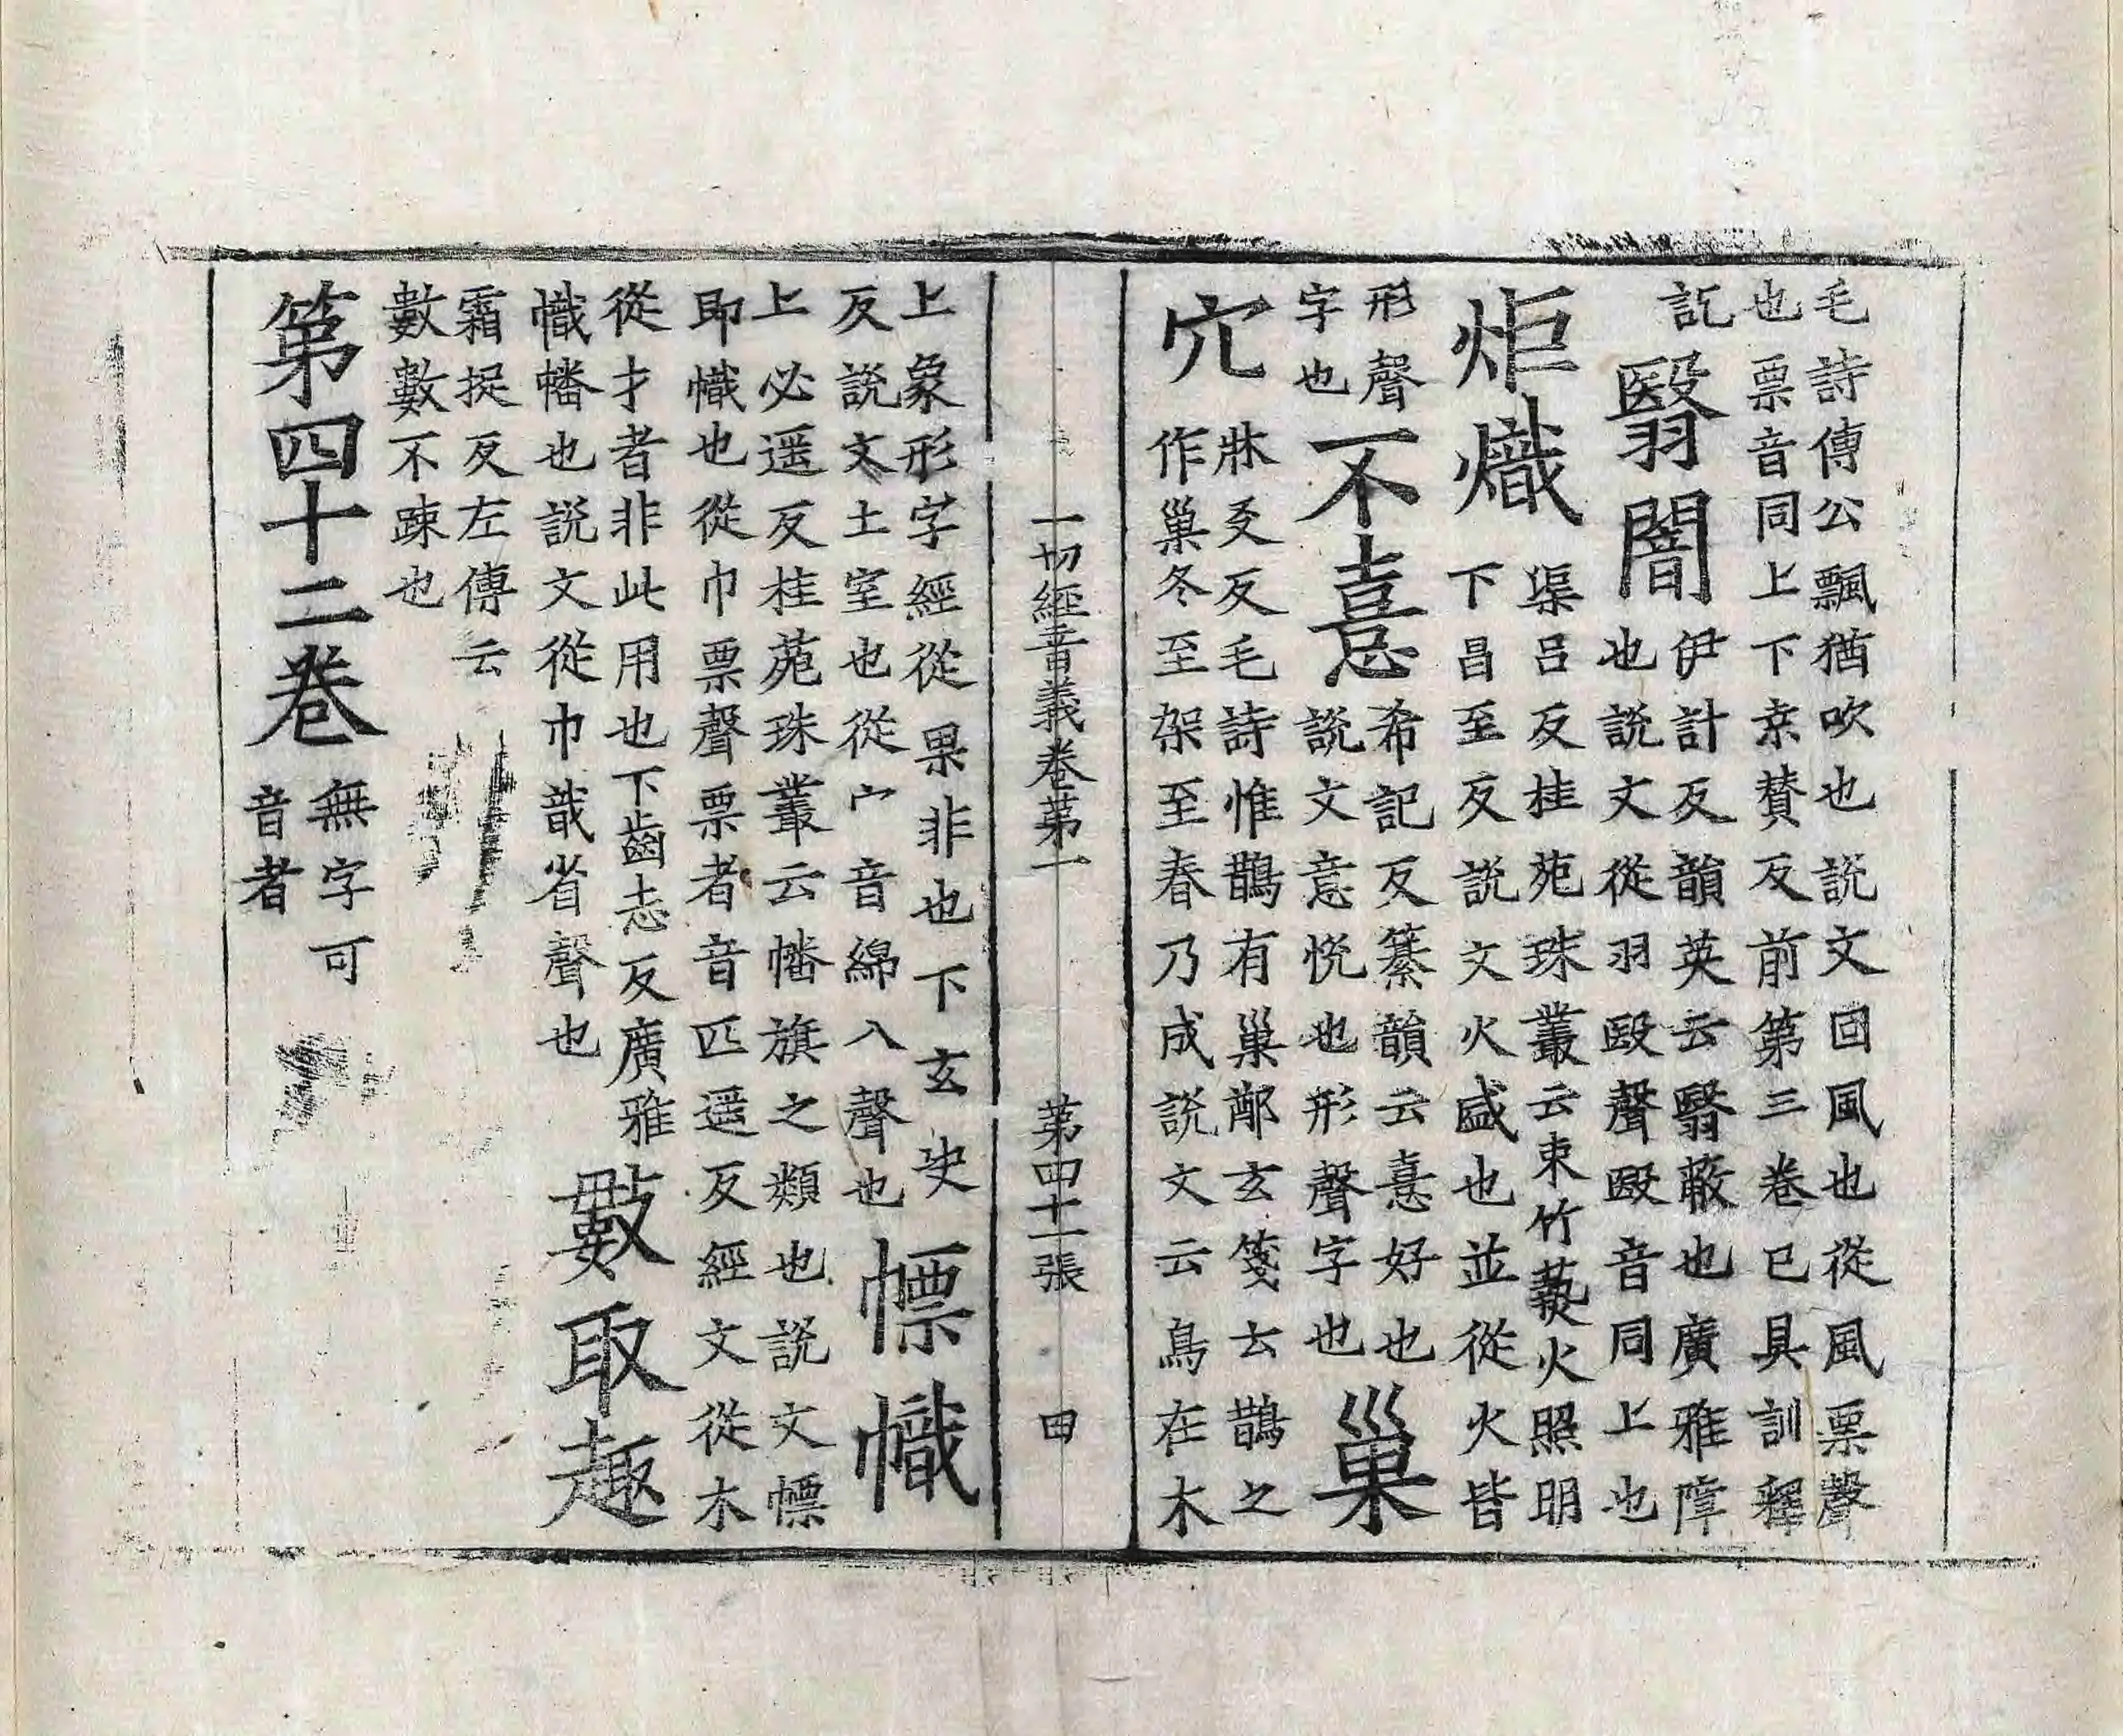 毛詩傳公飄猶吹也説文回風也從風票聲
也票音同上下桒賛反前第三卷已具訓釋
訖
翳闇
伊計反韻英云翳蔽也廣雅障
也説文從羽殹聲殹音同上也
炬熾
渠吕反桂苑珠叢云束竹爇火照明
下昌至反説文火盛也並從火皆
形聲
字也
不憙
希記反纂韻云憙好也
説文意悦也形聲字也
巢
穴
牀爻反毛詩惟鵲有巢鄭玄箋云鵲之
作巢冬至架至春乃成説文云鳥在木
一切經音義卷第一
第四十二張
田
上象形字經從果非也下玄决
反説文土室也從宀音綿入聲也
幖幟
上必遥反桂苑珠叢云幡旗之類也説文幖
即幟也從巾票聲票者音匹遥反經文從木
從才者非此用也下齒志反廣雅
幟幡也説文從巾戠省聲也
數取趣
霜捉反左傳云
數數不踈也
第四十二卷
無字可
音者